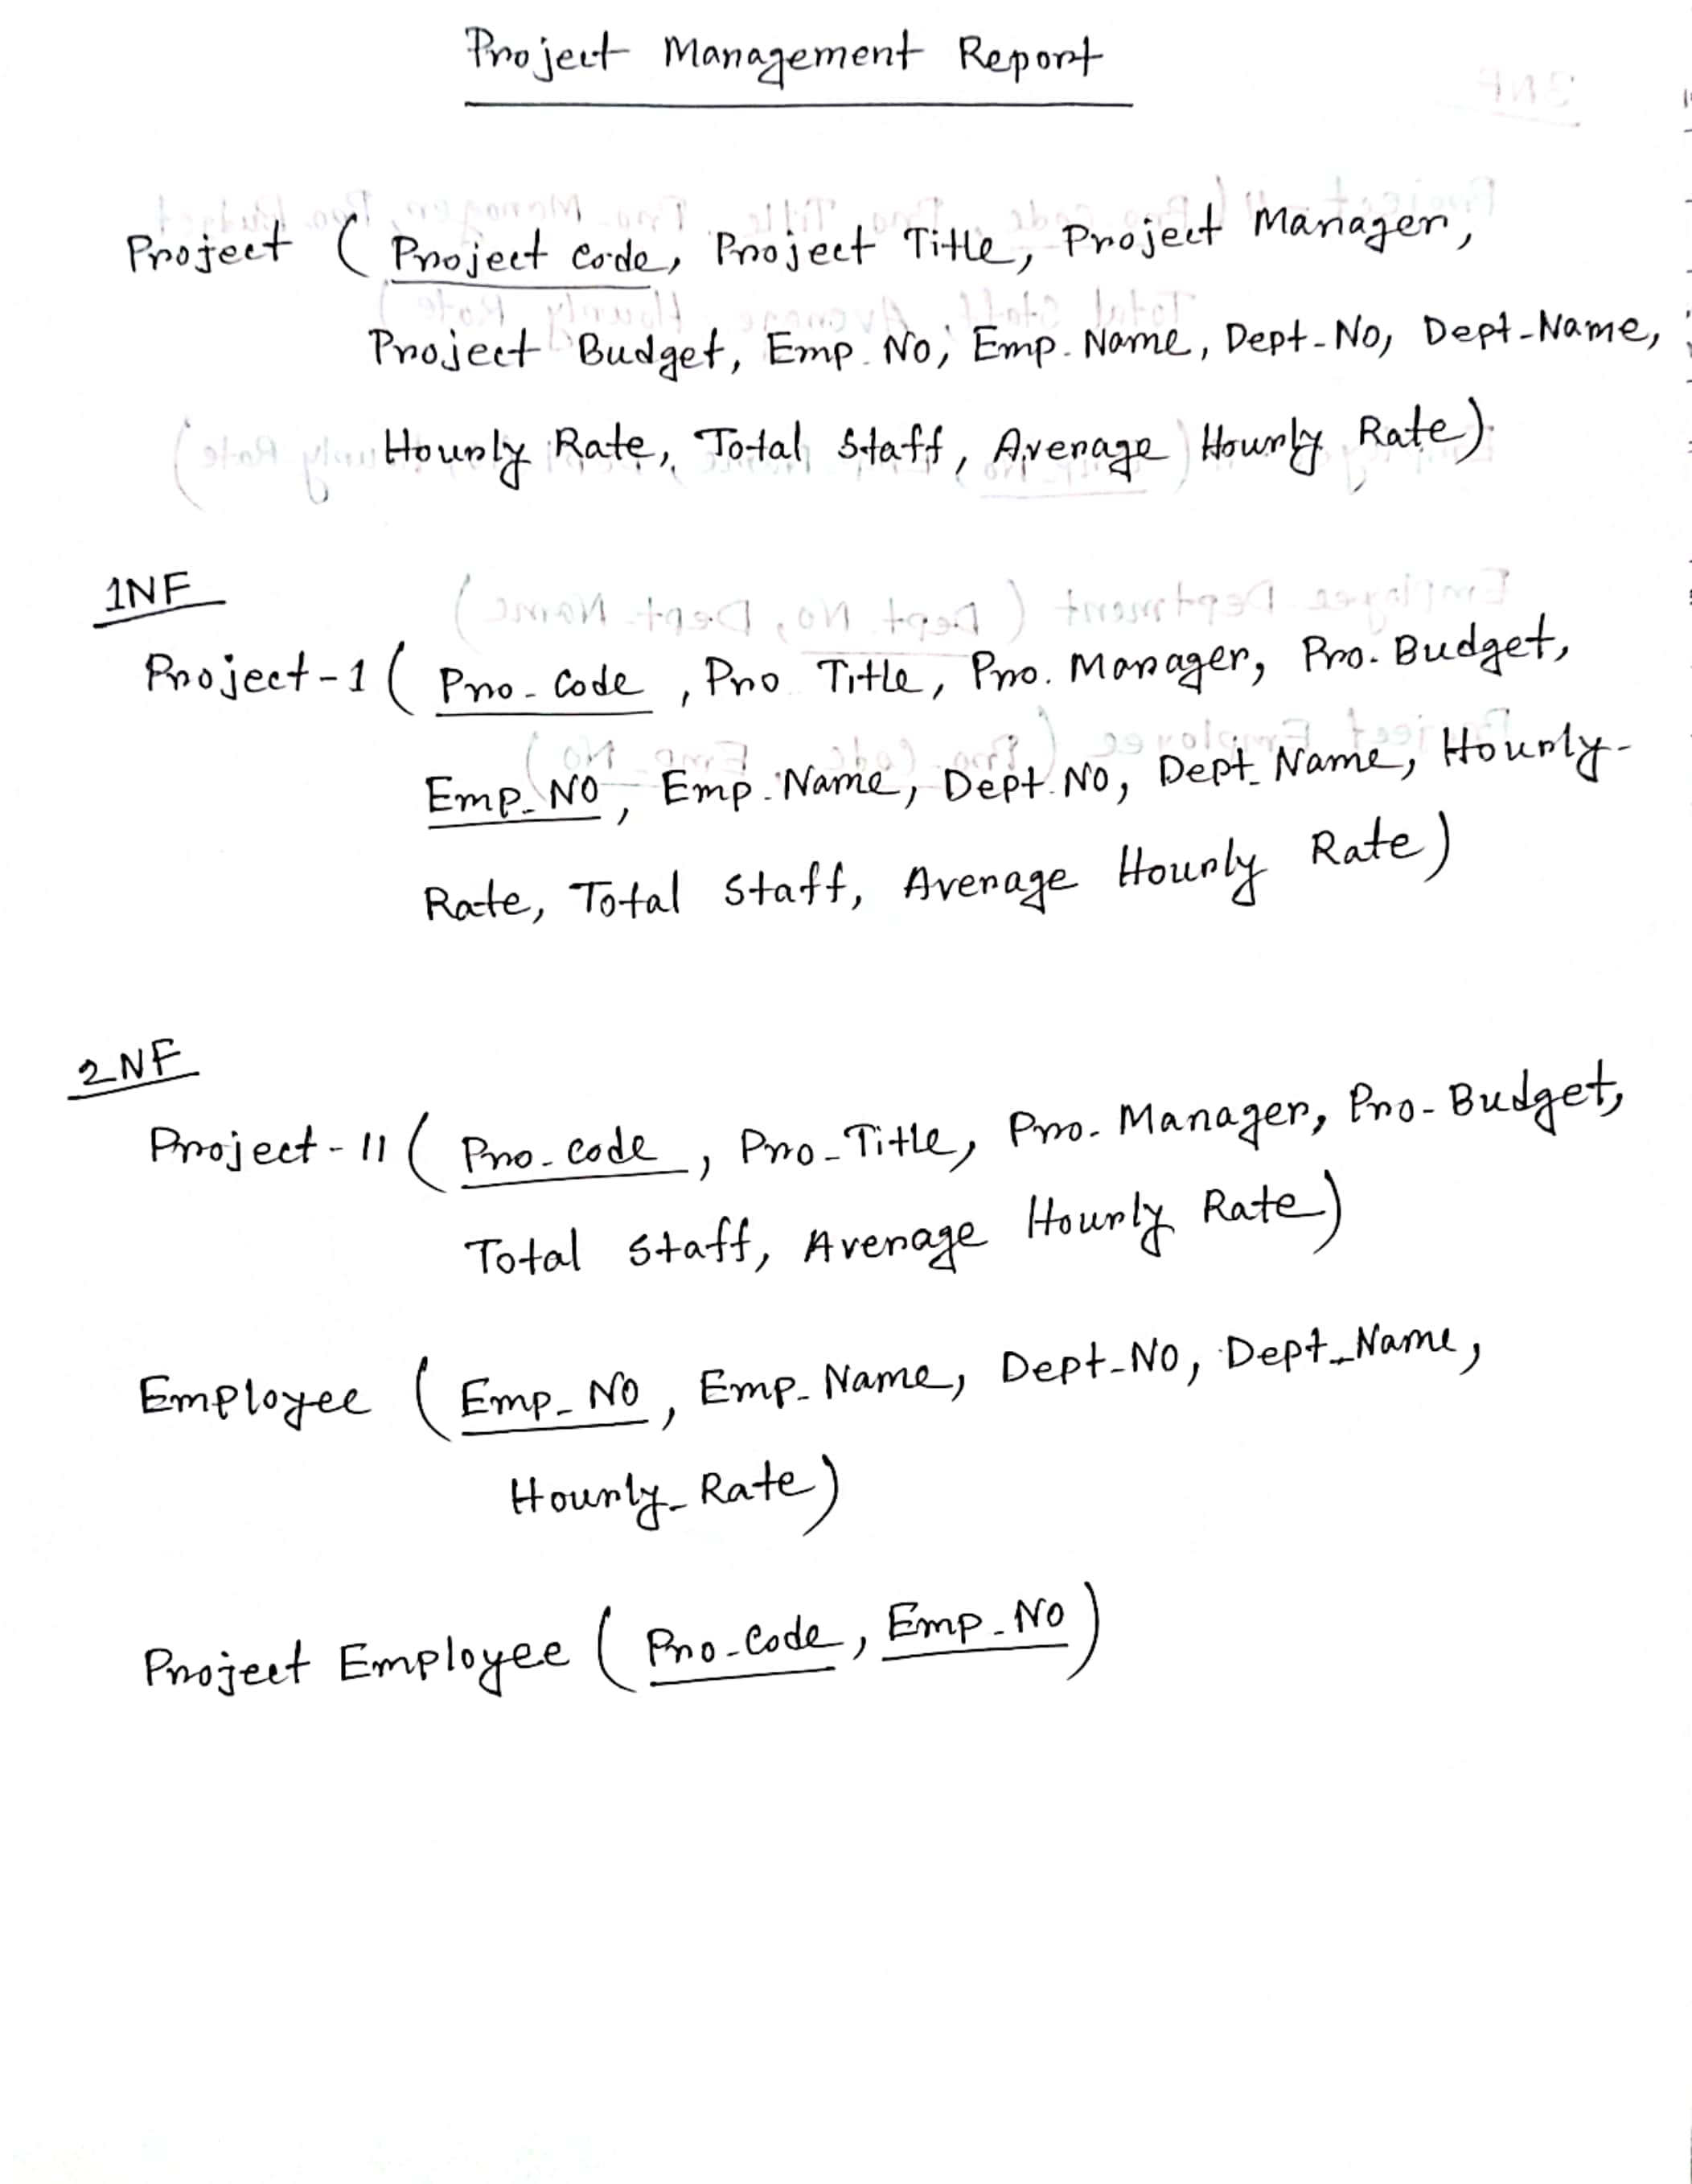 Project Management Report
Project (Project Code, Project Title, Project Manager,
Project Budget, Emp. No, Emp. Name, Dept-No, Dept-Name,
Hourly Rate, Total Staff, Average Hourly Rate)
1NF
Project-1 (Pro-Code, Pro Title, Pro. Manager, Pro. Budget,
Emp_NO, Emp. Name, Dept. NO, Dept_Name, Hourly-
Rate, Total Staff, Average Hourly Rate)
2NF
Project-11 (Pro-Code, Pro-Title, Pro. Manager, Pro-Budget,
Total Staff, Average Hourly Rate)
Employee (Emp_NO, Emp_Name, Dept-NO, Dept_Name,
Hourly_Rate)
Project Employee (Pro-Code, Emp_NO)